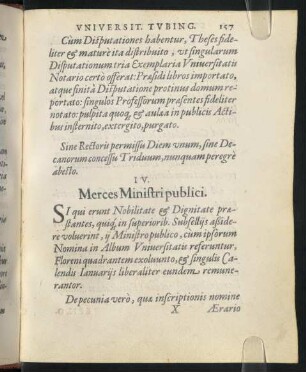 VNIVERSIT. TVBING. 157
Cùm Disputationes habentur, Theses fide-
liter & maturè ita distribuito, vt singularum
Disputationum tria Exemplaria Vniuersitatis
Notario certò offerat: Præsidi libros importato,
atque finitâ Disputatione protinus domum re-
portato: singulos Professorum præsentes fideliter
notato: pulpita quoq́, & aulæa in publicis Acti-
bus insternito, extergito, purgato.
Sine Rectoris permissu Diem vnum, sine De-
canorum concessu Triduum, nunquam peregrè
abesto.
IV.
Merces Ministri publici.
SI qui erunt Nobilitate & Dignitate præ-
stantes, quiq́, in superiorib. Subsellijs asside-
re voluerint, ij Ministro publico, cum ipsorum
Nomina in Album Vniuersitatis referuntur,
Floreni quadrantem exoluunto, & singulis Ca-
lendis Ianuarijs liberaliter eundem remune-
rantor.
De pecunia verò, quæ inscriptionis nomine
X Ærario